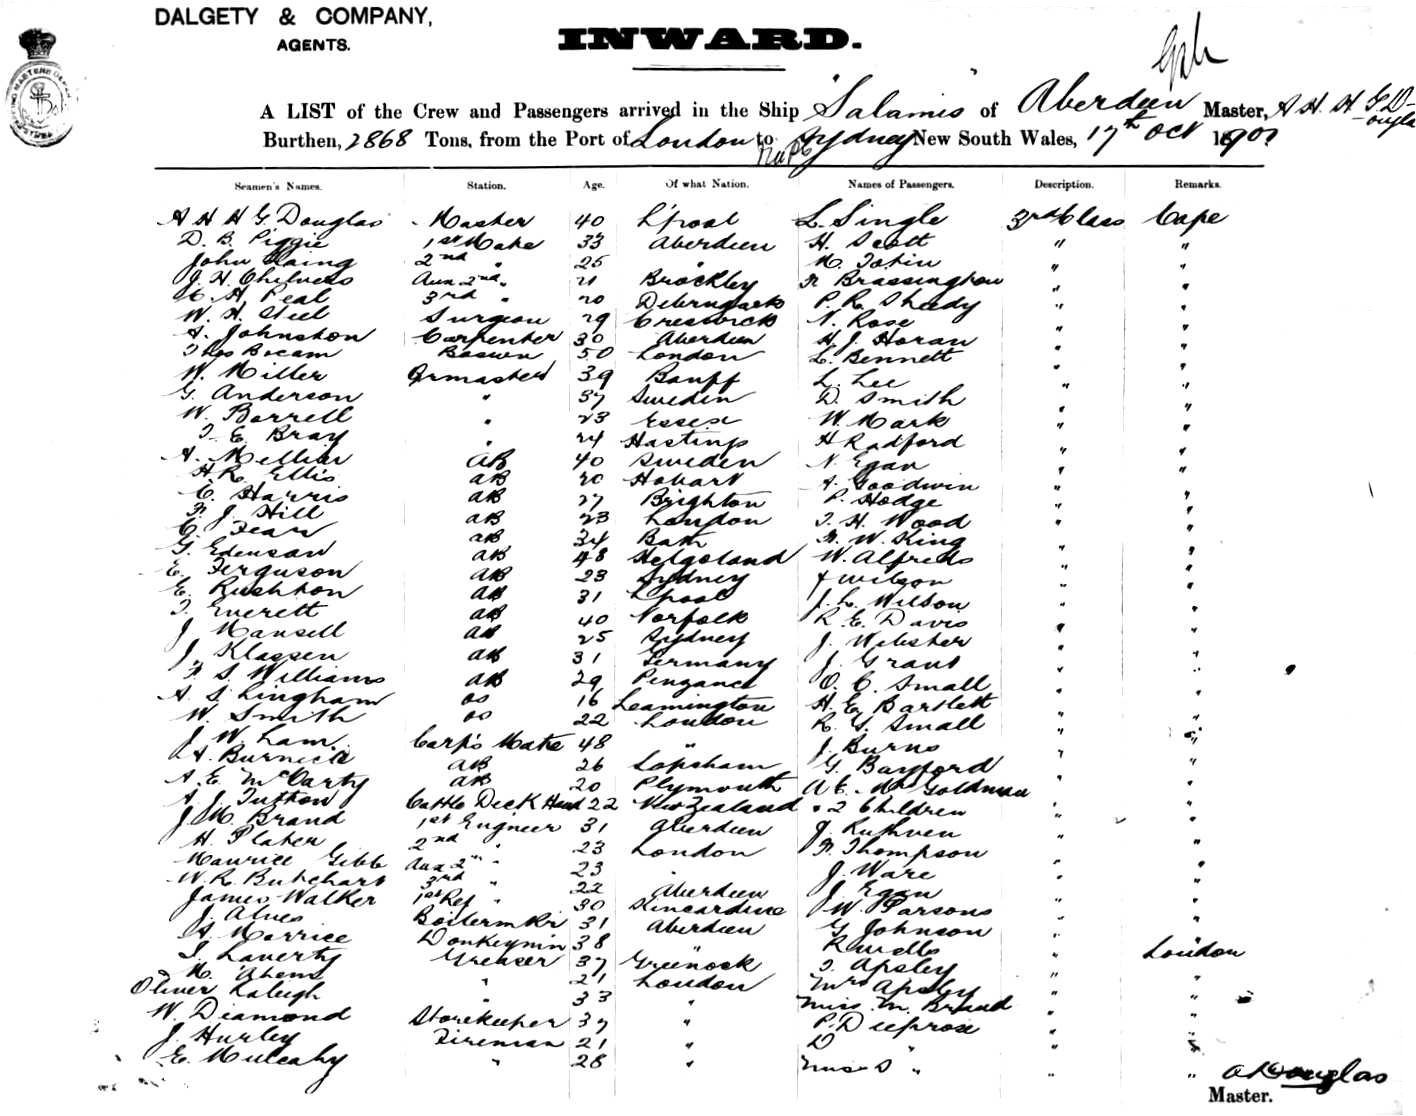 DALGETY & COMPANY,
AGENTS.
INWARD.
A LIST of the Crew and Passengers arrived in the Ship "Salamis" of Aberdeen Master, A H H G Douglas
Burthen, 2868 Tons, from the Port of London to Sydney New South Wales, 17th Oct 1901
Seamen's Names. Station. Age. Of what Nation. Names of Passengers. Description. Remarks.
A H H G Douglas Master 40 L'pool L. Single 3rd Class Cape
D. B. Piggie 1st Mate 33 Aberdeen H. Scott " "
John Laing 2nd " 25 " M. Tobin " "
J. H. Chilvers Aux 2nd " 21 Brockley F. Brassington " "
C. H. Peal 3rd " 20 P. R. Sheedy " "
W. H. Steel Surgeon 29 Creswick N. Rose " "
A. Johnston Carpenter 30 Aberdeen H. J. Horan " "
Thos Bocam Boswn 50 London L. Bennett " "
W. Miller Qrmaster 39 Banff L. Lee " "
G. Anderson " 37 Sweden D. Smith " "
W. Borrell " 23 Essex W. Mark " "
T. E. Bray " 24 Hastings H Radford " "
A. Mellin AB 40 Sweden N. Egan " "
H. R. Ellis AB 20 Hobart A. Goodwin " "
C. Harris AB 27 Brighton P. Hodge " "
F. J. Hill AB 23 London T. H. Wood " "
C. Fear AB 34 Bath F. W. King " "
G. Edensaw AB 48 Helgoland W. Alfreds " "
E. Ferguson AB 23 Sydney J Wilson " "
E. Rushton AB 31 L'pool J. L. Wilson " "
T. Everett AB 40 Norfolk R. E. Davis " "
J. Mansell AB 25 Sydney J. Webster " "
J. Klassen AB 31 Germany J. Grant " "
F. S. Williams AB 29 Penzance O. C. Small " "
A. S. Lingham OS 16 Leamington H. E. Bartlett " "
W. Smith OS 22 London R. G. Small " "
J. W. Lam Carp's Mate 48 " J. Burns " "
A. Burnice AB 26 Topsham G. Bayford " "
A. E. McCarty AB 20 Plymouth A E. Mrs Goldman " "
A. J. Tutton Cattle Deck Hand 22 New Zealand " 2 Children " "
J. M. Brand 1st Engineer 31 Aberdeen J. Ruthven " "
H. Plater 2nd " 23 London F. Thompson " "
Maurice Gibb Aux 2nd " 23 " J. Ware " "
W. R. Butchart 3rd " 22 Aberdeen J. Egan " "
James Walker 1st Ref " 30 Kincardine W. Parsons " "
J. Alves Boilermkr 31 Aberdeen G. Johnson " "
A. Morrice Donkeymn 38 " R Wells " London
T. Laverty Greaser 37 Greenock T. Apsley " "
M. Ahens " 21 London Mrs Apsley " "
Oliver Raleigh " 33 " Miss M. Brand " "
W. Diamond Storekeeper 37 " P. Deeprose " "
J. Hurley Fireman 21 " D " " "
E. Mulcahy " 28 " Miss D " " "
A Douglas
Master.